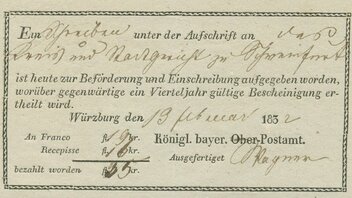 Ein Schreiben unter der Aufschrift an das
Kreis und Stadtgericht zu Schweinfurt
ist heute zur Beförderung und Einschreibung aufgegeben worden,
worüber gegenwärtige ein Vierteljahr gültige Bescheinigung er-
theilt wird.
Würzburg den 13 februar 1832
An Franco fl. kr. Königl. bayer. Ober-Postamt.
Recepisse fl. kr. Ausgefertiget Wagner
bezahlt worden kr.